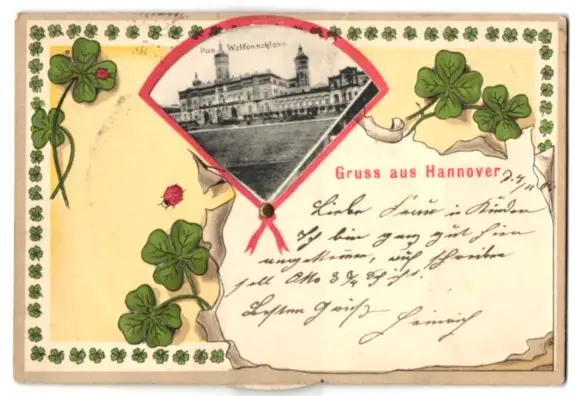 Das Welfenschloss
Gruss aus Hannover
Liebe Frau u Kinder
Ich bin ganz gut hier
angekommen, auch schreiben
soll Otto 3
Besten Gruß
Heinrich